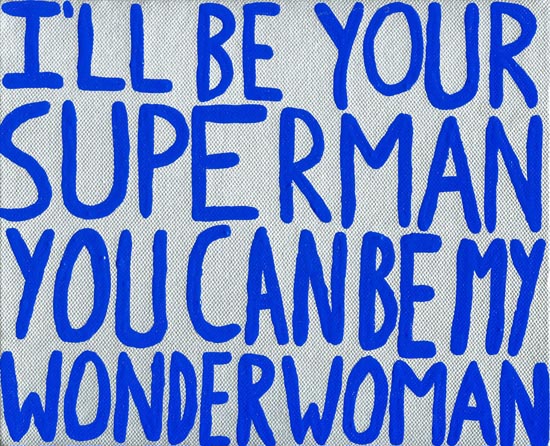 I'LL BE YOUR
SUPERMAN
YOU CAN BE MY
WONDERWOMAN